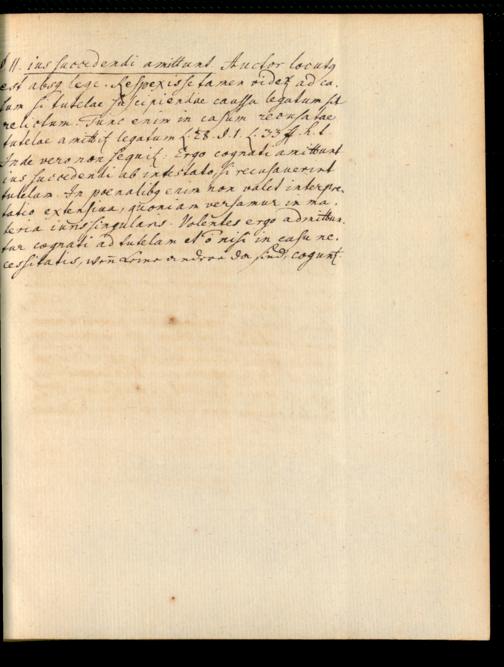 § 11. ius succedendi amittunt Auctor locutq
est absq lege. Respexisse tamen videt ad ca-
sum si tutelae suscipiendae caussa legatum sit
relictum. Tunc enim in casum recusatae
tutelae amittit legatum L. 28. §. 1. L. 33 ff. h. t.
Inde vero non sequit: Ergo cognati amittunt
ius succedendi ab intestato si recusaverint
tutelam. In poenalibq enim non valet interpre-
tatio extensiva, quoniam versamur in ma-
teria iuris singularis. Volentes ergo admittun-
tur cognati ad tutelam et õ nisi in casu ne-
cessitatis, wenn keine andere da sind, cogunt